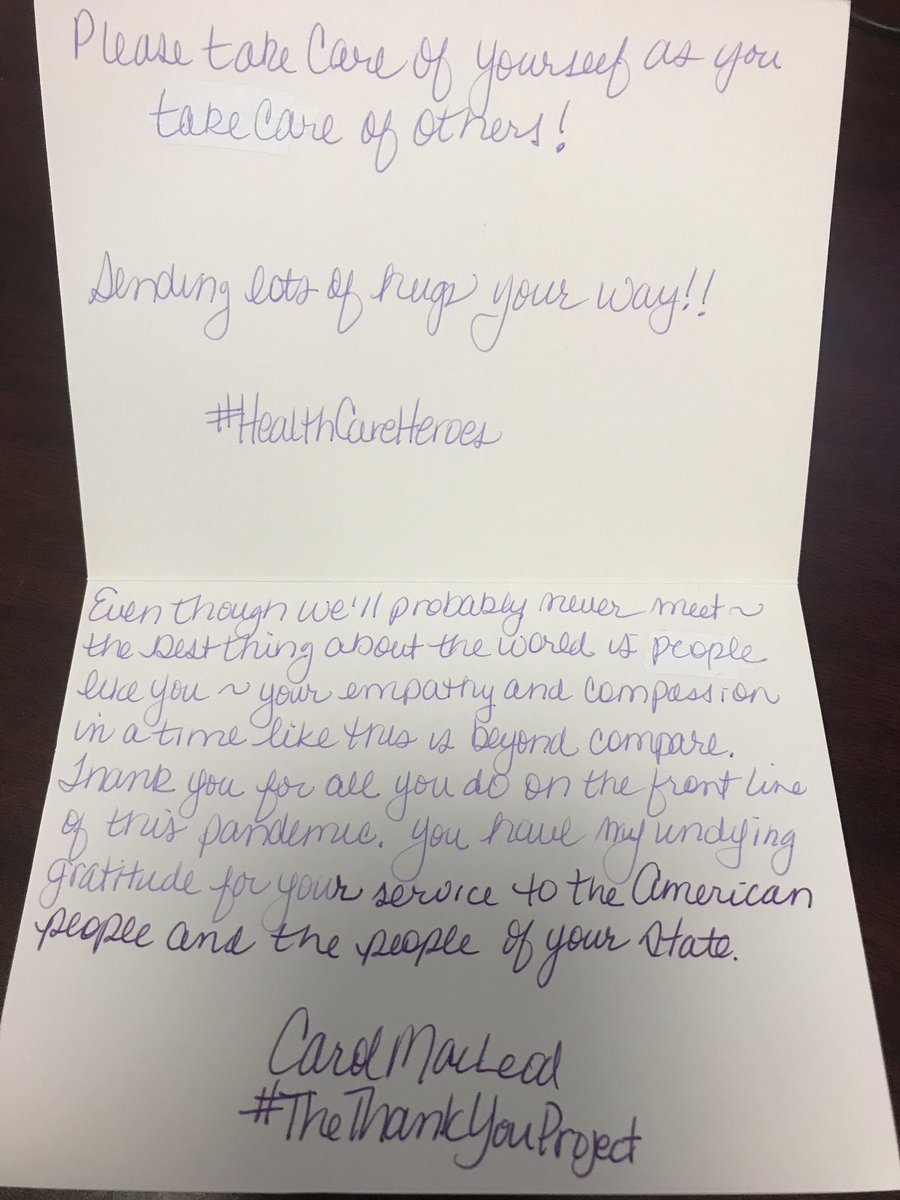 Please take Care of yourself as you
take Care of others!
Sending lots of hugs your way!!
#HealthCareHeroes
Even though we'll probably never meet~
the best thing about the world is people
like you ~ your empathy and compassion
in a time like this is beyond compare.
Thank you for all you do on the front line
of this pandemic. You have my undying
gratitude for your service to the American
people and the people of your State.
Carol MacLeod
#TheThankYouProject